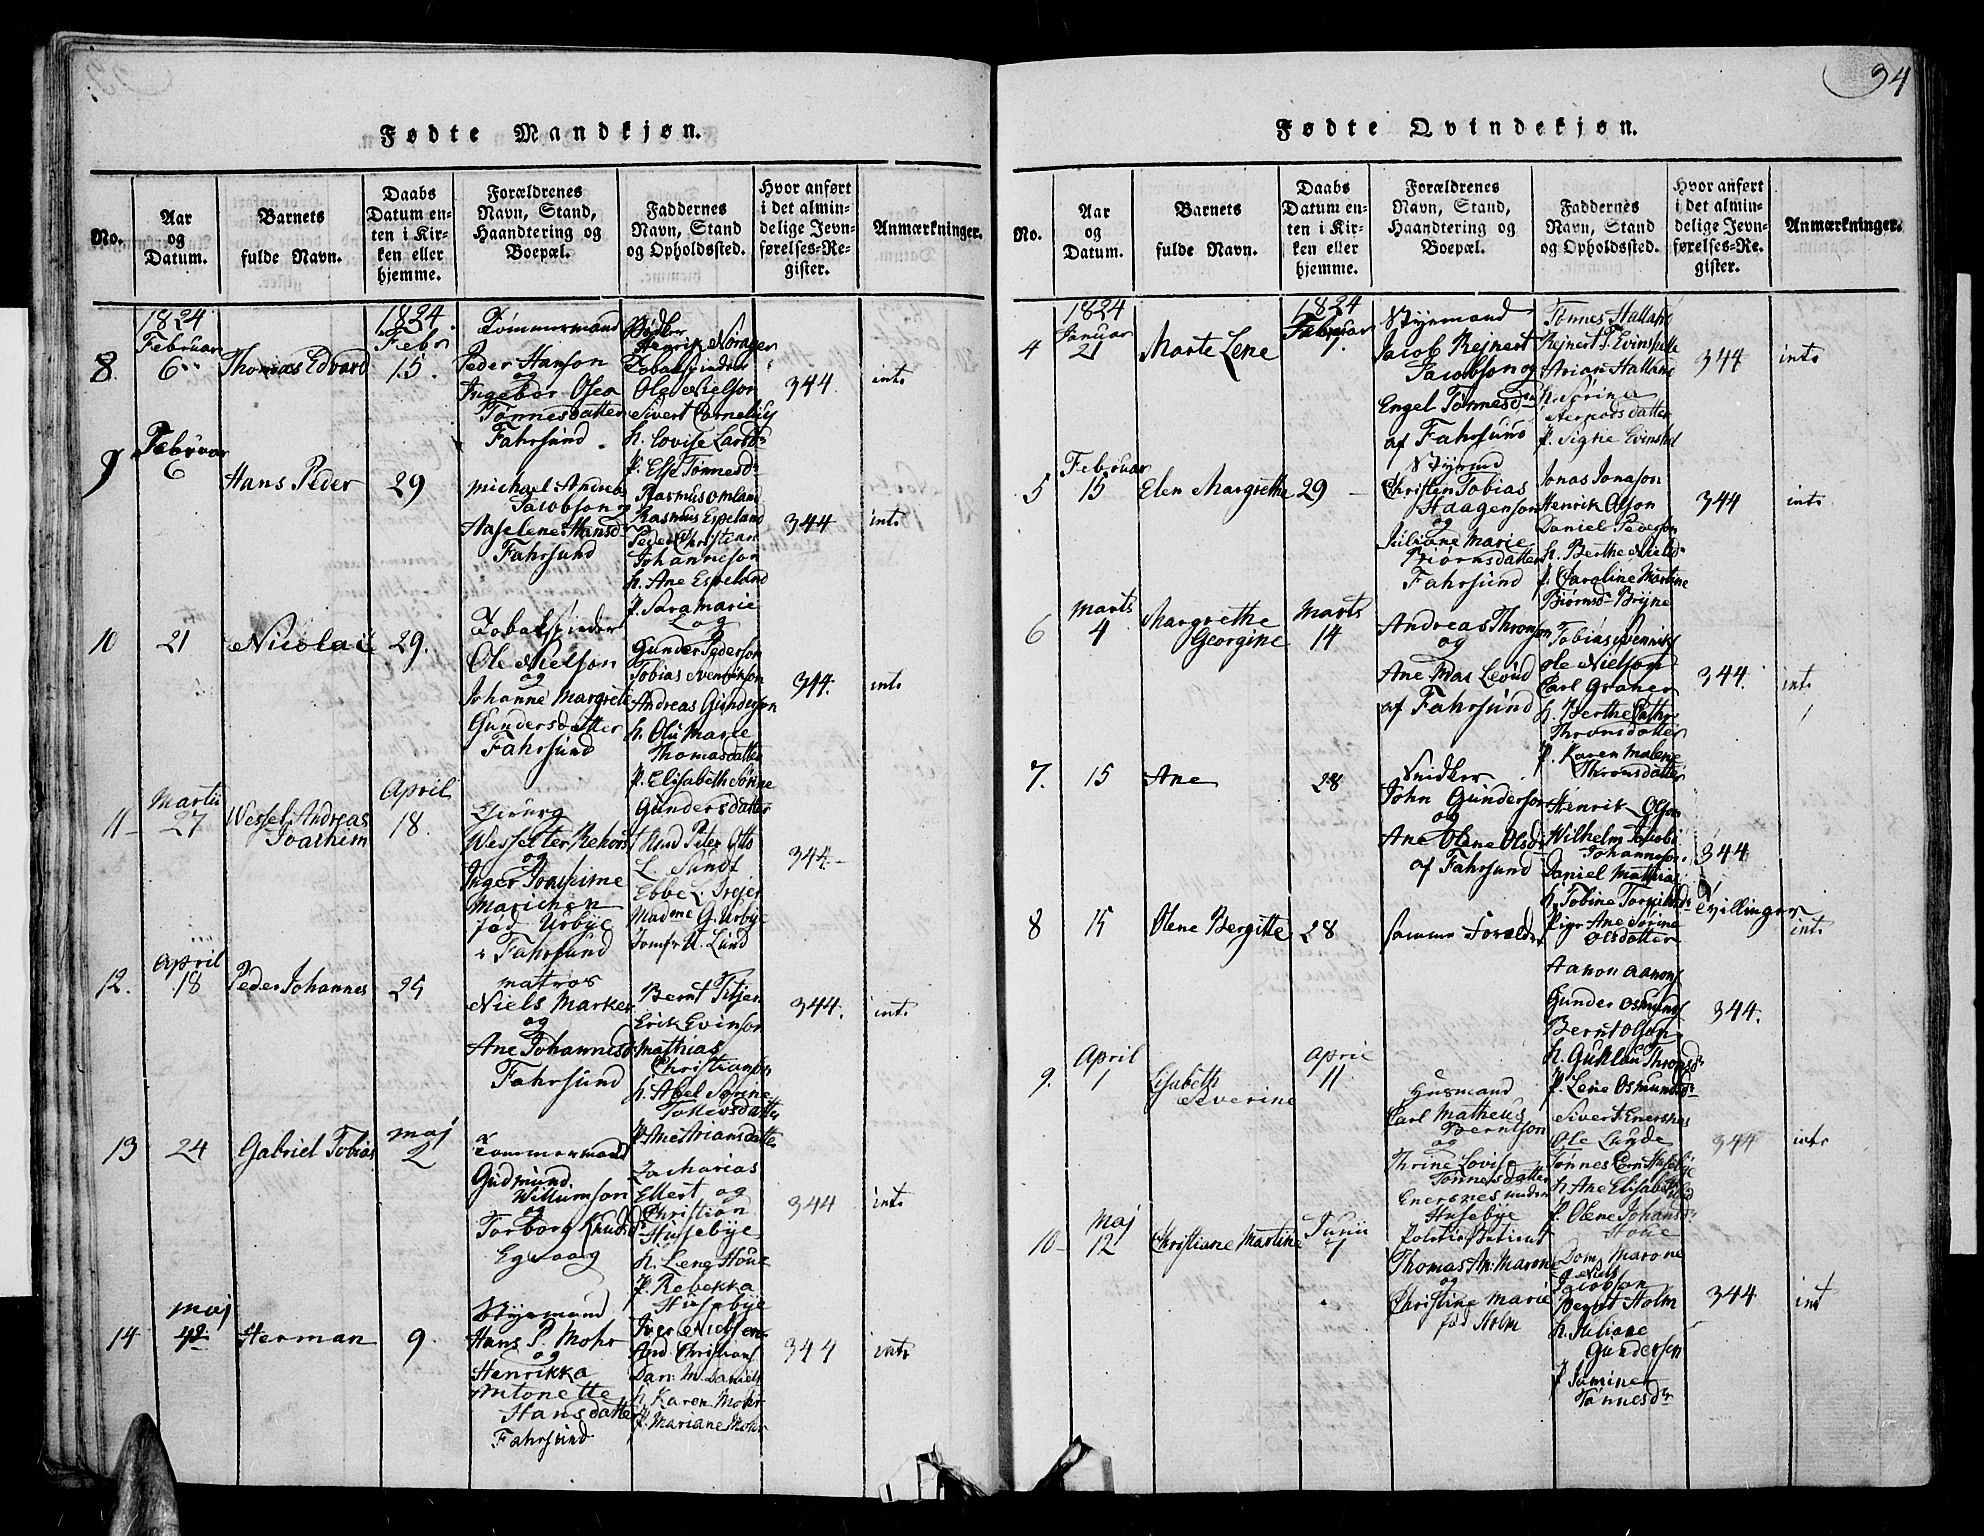 34
Fødte Mandkjøn.
No.
Aar
og
Datum.
Barnets
fulde Navn.
Daabs
Datum en-
ten i Kir-
ken eller
hjemme.
Forældrenes
Navn, Stand,
Haandtering og
Boepæl.
Faddernes
Navn, Stand
og Opholdssted.
Hvor anført
i det almin-
delige Jevn-
førelses-Re-
gister.
Anmærkninger.
8.
1824
Februar
6
Thomas Edvard
1824.
Febr
15.
Tømmermand
Peder Hanson
og
Ingebor Osea
Tønnesdatter
Fahrsund.
Bødker
Henrik Norager
Tobakspinder
Ole Nielson
Sivert Cornelius
h. Lovise Larsdr
P. Else Tønnesdr
344
int
9
Februar
6
Hans Peder
29
Michael Andreas
Jacobson og
Aaselene Hansd
Fahrsund
Rasmus Omland
Rasmus Espeland
Peder Christian
Johanneson
h. Ane Espeland
P. Sara Marie
344
int
10
21
Nicolai
29.
Tobakspinder
Ole Nielson
og
Johanne Margrete
Gundersdatter
Fahrsund
Gunder Pederson
Tobias Svenikson
Andreas Gunderson
h. Olu Marie
Thomasdatter
P. Elisabeth Sørine
Gundersdatter
344.
int
11
Martii
27
Wessel Andreas
Joachim
April
18.
og
Marichen
fød Urbye
i Fahrsund
Knud Peter Otto
L Sundt
Ebbe L. Drejer
Madme G. Urbye
Jomfr U. Lund
344
12.
April
18
Peder Johannes
25
Matros
Niels Marker
og
Ane Johannesd
Fahrsund
Bernt Titjen
Erik Evinson
Mathias
Christians
h. Abel Sørine
Tollevsdatter
P. Ane Ariansdatter
344.
int
13
24
Gabriel Tobias
Maj
2
Tommermand
Gudmund
Willumson
og
Torborg Knudsd
Egvaag
Zacharias
Ellert og
Christian
Husebye
h. Lene Houe
P. Rebekka
Husebye
344
int
14
Maj
Herman
9
Styrmand
Hans P. Mohr
og
Henrikka
Antonette
Hansdatter
Fahrsund
Iver Nielsen
And. Christians
Dan: M. Daniels
h. Karen Mohr
P. Mariane Mohr
344
int
Fødte Qvindekjøn.
No.
Aar
og
Datum.
Barnets
fulde Navn.
Daabs
Datum en-
ten i Kir-
ken eller
hjemme.
Forældrenes
Navn, Stand,
Haandtering og
Boepæl.
Faddernes
Navn, Stand
og Opholdssted.
Hvor anført
i det almin-
delige Jevn-
førelses-Re-
gister.
Anmærkninger.
4
1824
Januar
21
Marte Lene
1824
Februar
1.
Styrmand
Jacob Rejnert
Jacobson og
Engel Tønnesd
af Fahrsund
Tønnes Halland
Rejnert T. Evinstelle
Arian Halland
h. Sørine
P. Signe Evinsted
344
int
5
Februar
15
Elen Margrethe
29
Styrmd
Christen Tobias
Haagenson
og
Juliane Marie
Biørnsdatter
Fahrsund
Jonas Jonason
Henrik Olson
Daniel Pederson
h. Berthe Nielsd
P. Caroline Martine
Biørnsd Bryne
344
int
6
Marts
4
Margrethe
Georgine
Marts
14
Andreas Thronson
og
Ane Mas Levud
af Fahrsund
Tobias Svenniks
Ole Nielson
Carl Graner
h. Berthe Cathr
Thronsdatter
P. Karen Malene
Thronsdatter
344.
int
7.
15
Ane
28
Snidker
John Gunderson
og
Ane Olene Olsd
af Fahrsund
Henrik Olson
Wilhelm Jacobi
Johanneson
Daniel Mathias
h. Tobine Torkilds
Pige Ane Sørine
Olsdatter
344
Tvillinger
int
8
15
Olene Bergitte
28
samme Foreldr
Aanon Aanons
Gunder Osmunds
Bernt Olson
h. Gunlau Thronsdr
P. Lene Osmundsdr
344.
9.
April
1
Lisabeth
Severine
April
11
Husmand
Carl Matheus
Berntson
og
Thrine Lovise
Tønnesdatter
Enersnes under
Husebye
Sivert Enersnes
Ole Lunde
Tønnes Ern Husebye
h. Ane Elisabeth
P. Olene Johansdr
Houe
344
int
10
Maj
12
Christiane Martine
Junii
7
Politie Betient
Thomas An: Marone
og
Christine Marie
fød Holm
Dom. Marone
Niels
Jacobson
Bernt Holm
h. Juliane
Gundersen
P. Jamine
Tønnesdr
344
int